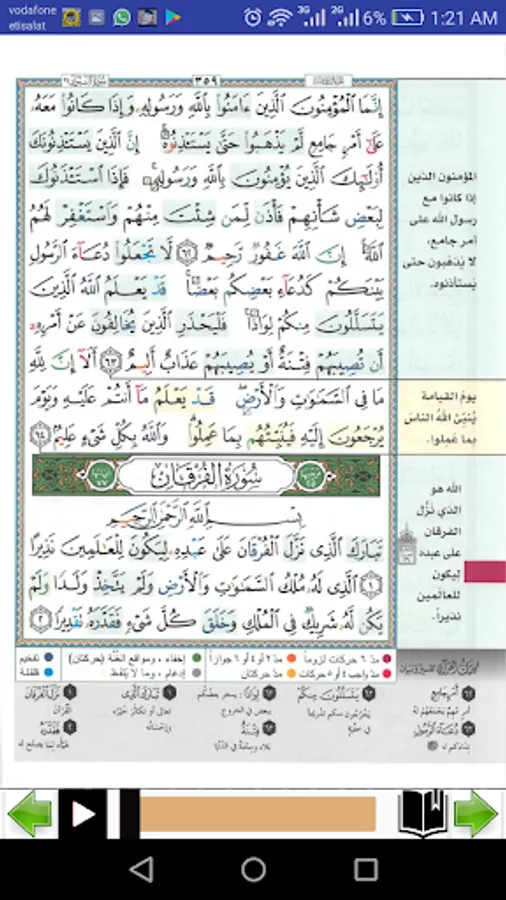 vodafone
etisalat
3G
2G
6%
1:21 AM
٣٥٩
إِنَّمَا ٱلْمُؤْمِنُونَ ٱلَّذِينَ ءَامَنُوا۟ بِٱللَّهِ وَرَسُولِهِۦ وَإِذَا كَانُوا۟ مَعَهُۥ
عَلَىٰٓ أَمْرٍ جَامِعٍ لَّمْ يَذْهَبُوا۟ حَتَّىٰ يَسْتَـْٔذِنُوهُ ۚ إِنَّ ٱلَّذِينَ يَسْتَـْٔذِنُونَكَ
أُو۟لَـٰٓئِكَ ٱلَّذِينَ يُؤْمِنُونَ بِٱللَّهِ وَرَسُولِهِۦ ۚ فَإِذَا ٱسْتَـْٔذَنُوكَ
لِبَعْضِ شَأْنِهِمْ فَأْذَن لِّمَن شِئْتَ مِنْهُمْ وَٱسْتَغْفِرْ لَهُمُ
ٱللَّهَ ۚ إِنَّ ٱللَّهَ غَفُورٌ رَّحِيمٌ ﴿٦٢﴾ لَّا تَجْعَلُوا۟ دُعَآءَ ٱلرَّسُولِ
بَيْنَكُمْ كَدُعَآءِ بَعْضِكُم بَعْضًا ۚ قَدْ يَعْلَمُ ٱللَّهُ ٱلَّذِينَ
يَتَسَلَّلُونَ مِنكُمْ لِوَاذًا ۚ فَلْيَحْذَرِ ٱلَّذِينَ يُخَالِفُونَ عَنْ أَمْرِهِۦٓ
أَن تُصِيبَهُمْ فِتْنَةٌ أَوْ يُصِيبَهُمْ عَذَابٌ أَلِيمٌ ﴿٦٣﴾ أَلَآ إِنَّ لِلَّهِ
مَا فِى ٱلسَّمَـٰوَٰتِ وَٱلْأَرْضِ ۖ قَدْ يَعْلَمُ مَآ أَنتُمْ عَلَيْهِ وَيَوْمَ
يُرْجَعُونَ إِلَيْهِ فَيُنَبِّئُهُم بِمَا عَمِلُوا۟ ۗ وَٱللَّهُ بِكُلِّ شَىْءٍ عَلِيمٌ ﴿٦٤﴾
سُورَةُ الْفُرْقَانِ
بِسْمِ ٱللَّهِ ٱلرَّحْمَـٰنِ ٱلرَّحِيمِ
تَبَارَكَ ٱلَّذِى نَزَّلَ ٱلْفُرْقَانَ عَلَىٰ عَبْدِهِۦ لِيَكُونَ لِلْعَـٰلَمِينَ نَذِيرًا
﴿١﴾ ٱلَّذِى لَهُۥ مُلْكُ ٱلسَّمَـٰوَٰتِ وَٱلْأَرْضِ وَلَمْ يَتَّخِذْ وَلَدًا وَلَمْ
يَكُن لَّهُۥ شَرِيكٌ فِى ٱلْمُلْكِ وَخَلَقَ كُلَّ شَىْءٍ فَقَدَّرَهُۥ تَقْدِيرًا ﴿٢﴾
المؤمنون الذين
إذا كانوا مع
رسول الله على
أمر جامع،
لا يذهبون حتى
يستأذنوه.
يوم القيامة
يُنبئ الله الناس
بما عملوا.
الله هو
الذي نزّل
الفرقان
على عبده
ليكون
للعالمين
نذيراً.
مدّ ٦ حركات لزوماً
مدّ ٢ أو ٤ أو ٦ جوازاً
إخفاء، ومواقع الغُنَّة (حركتان)
تفخيم
مدّ واجب ٤ أو ٥ حركات
مدّ حركتان
إدغام، وما لا يُلفظ
قلقلة
أَمْرٍ جَامِعٍ
يَتَسَلَّلُونَ مِنكُمْ
لِوَاذًا
تَبَارَكَ الَّذِي
نَزَّلَ الْفُرْقَانَ
القرآن
دُعَاءَ الرَّسُولِ
فِتْنَةٌ
فَقَدَّرَهُ